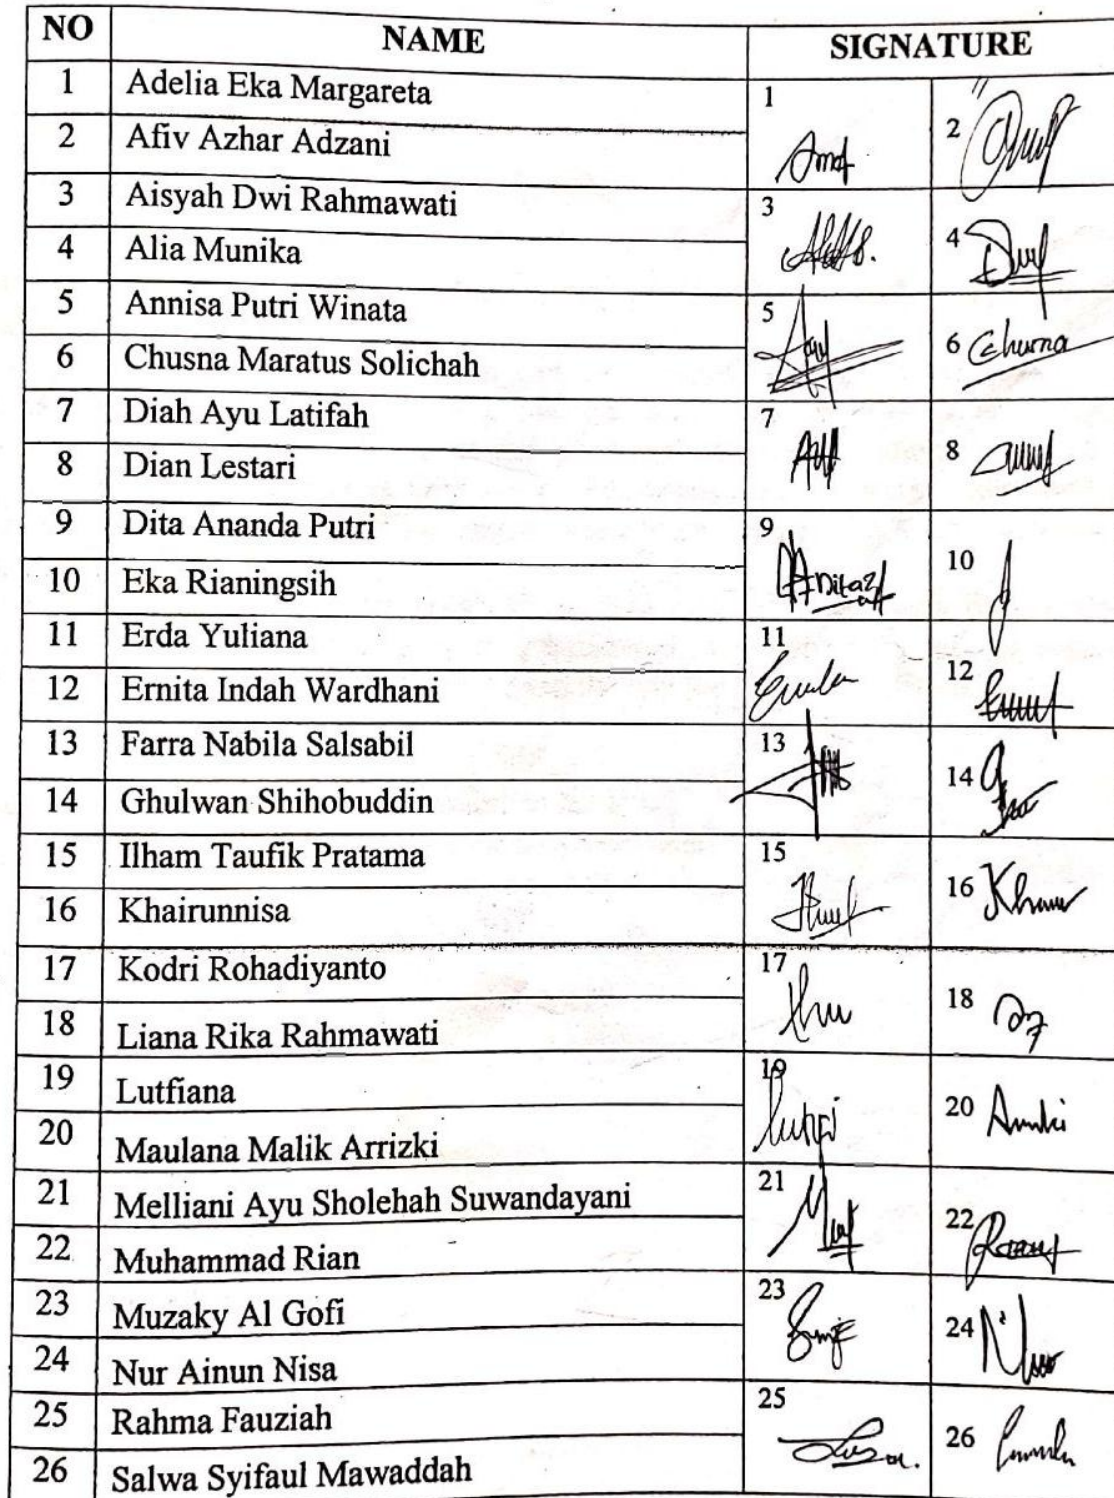 NO NAME SIGNATURE
1 Adelia Eka Margareta 1
2 Afiv Azhar Adzani 2
3 Aisyah Dwi Rahmawati 3
4 Alia Munika 4
5 Annisa Putri Winata 5
6 Chusna Maratus Solichah 6 Chusna
7 Diah Ayu Latifah 7
8 Dian Lestari 8
9 Dita Ananda Putri 9
10 Eka Rianingsih 10
11 Erda Yuliana 11
12 Ernita Indah Wardhani 12
13 Farra Nabila Salsabil 13
14 Ghulwan Shihobuddin 14
15 Ilham Taufik Pratama 15
16 Khairunnisa 16
17 Kodri Rohadiyanto 17
18 Liana Rika Rahmawati 18
19 Lutfiana 19
20 Maulana Malik Arrizki 20
21 Melliani Ayu Sholehah Suwandayani 21
22 Muhammad Rian 22
23 Muzaky Al Gofi 23
24 Nur Ainun Nisa 24
25 Rahma Fauziah 25
26 Salwa Syifaul Mawaddah 26